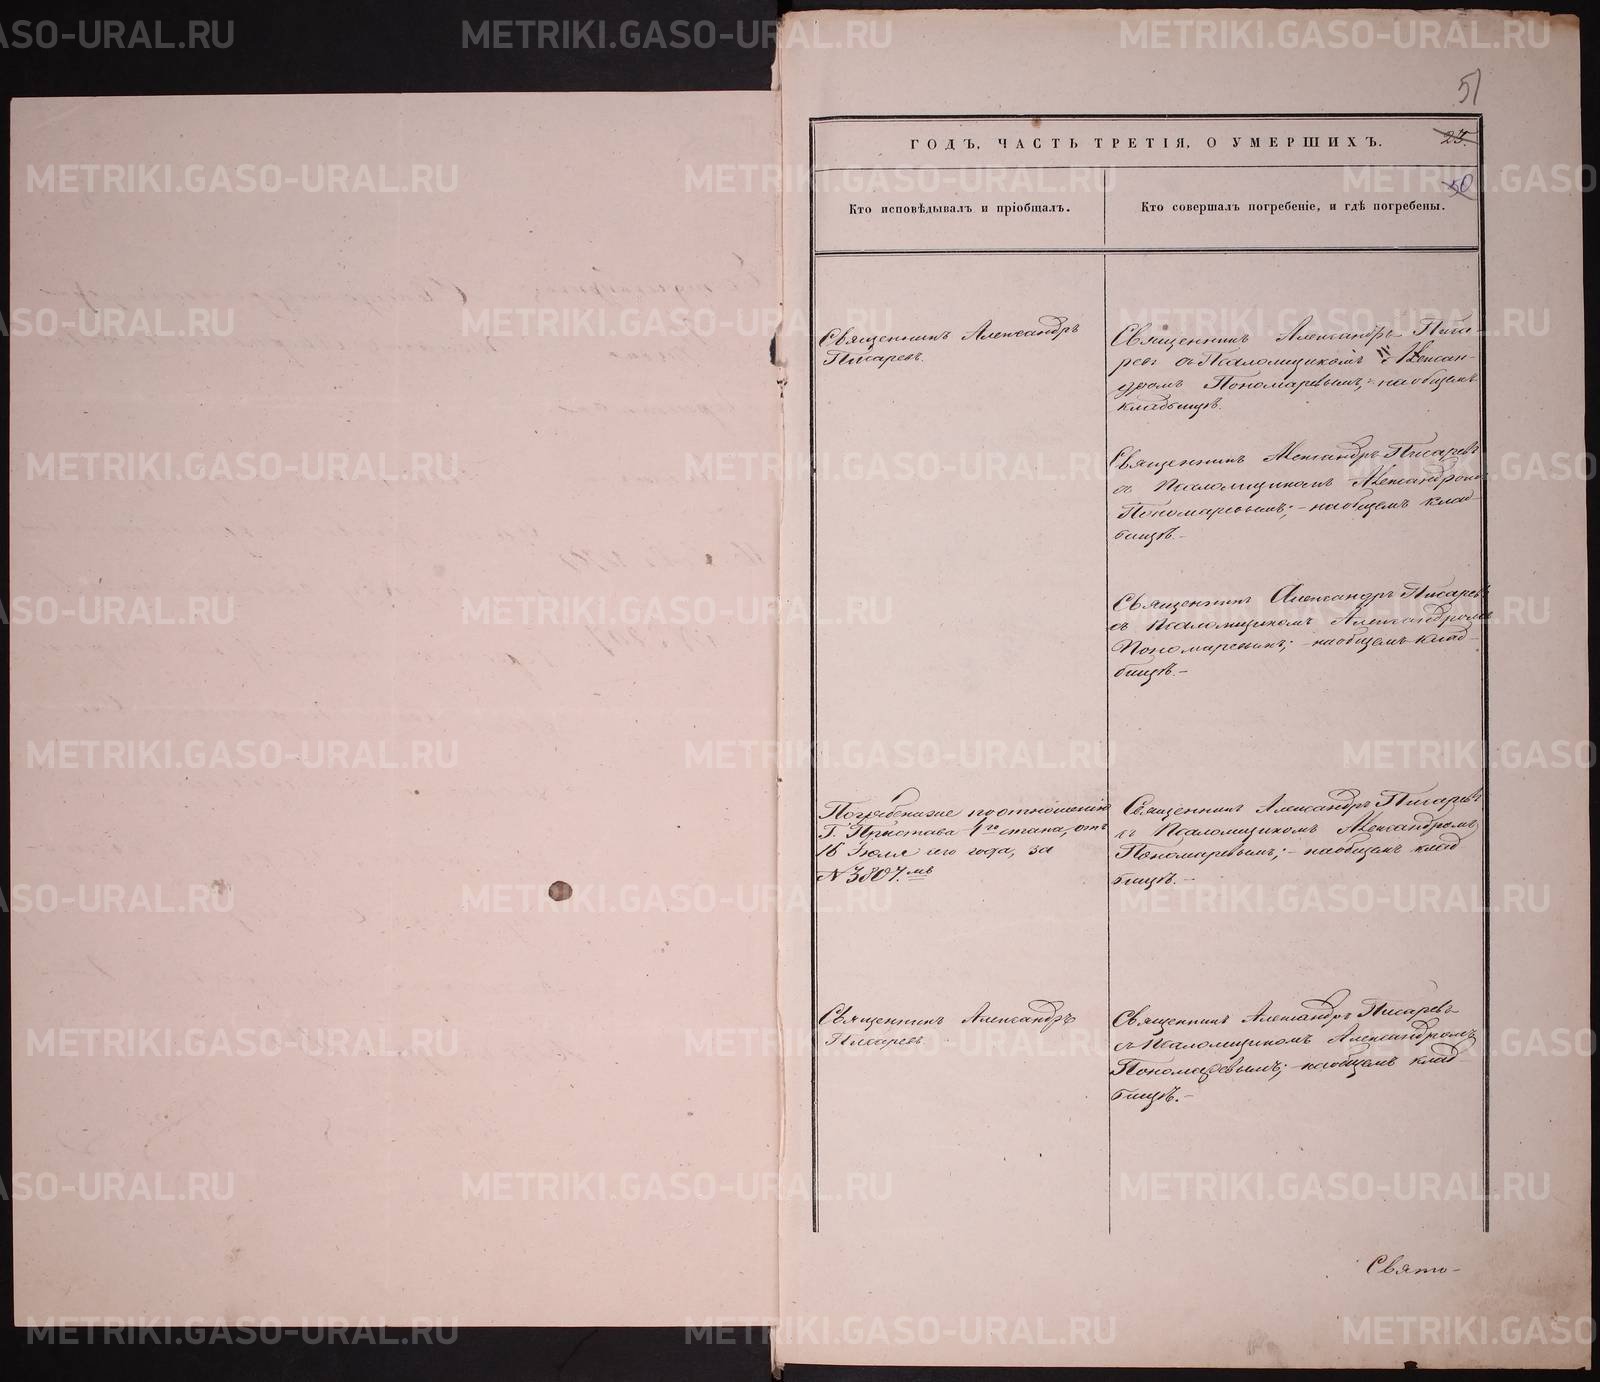 51
ГОДЪ, ЧАСТЬ ТРЕТІЯ, О УМЕРШИХЪ.
25.
50
Кто исповѣдывалъ и пріобщалъ.
Кто совершалъ погребеніе, и гдѣ погребены.
Священникъ Александръ
Писаревъ.
Священникъ Александръ Писа-
ревъ съ Псаломщикомъ Алексан-
дромъ Пономаревымъ; на общемъ
кладбищѣ.
Священникъ Александръ Писаревъ
съ Псаломщикомъ Александромъ
Пономаревымъ; – на общемъ клад-
бищѣ. –
Священникъ Александръ Писаревъ
съ Псаломщикомъ Александромъ
Пономаревымъ; – на общемъ клад-
бищѣ. –
Погребеніе по отношенію
Г. Пристава 4го стана, отъ
16 Іюля сего года, за
№ 3807.мъ
Священникъ Александръ Писаревъ
съ Псаломщикомъ Александромъ
Пономаревымъ; – на общемъ клад-
бищѣ. –
Священникъ Александръ
Писаревъ
Священникъ Александръ Писаревъ
съ Псаломщикомъ Александромъ
Пономаревымъ; на общемъ клад-
бищѣ. –
Свято-
METRIKI.GASO-URAL.RU